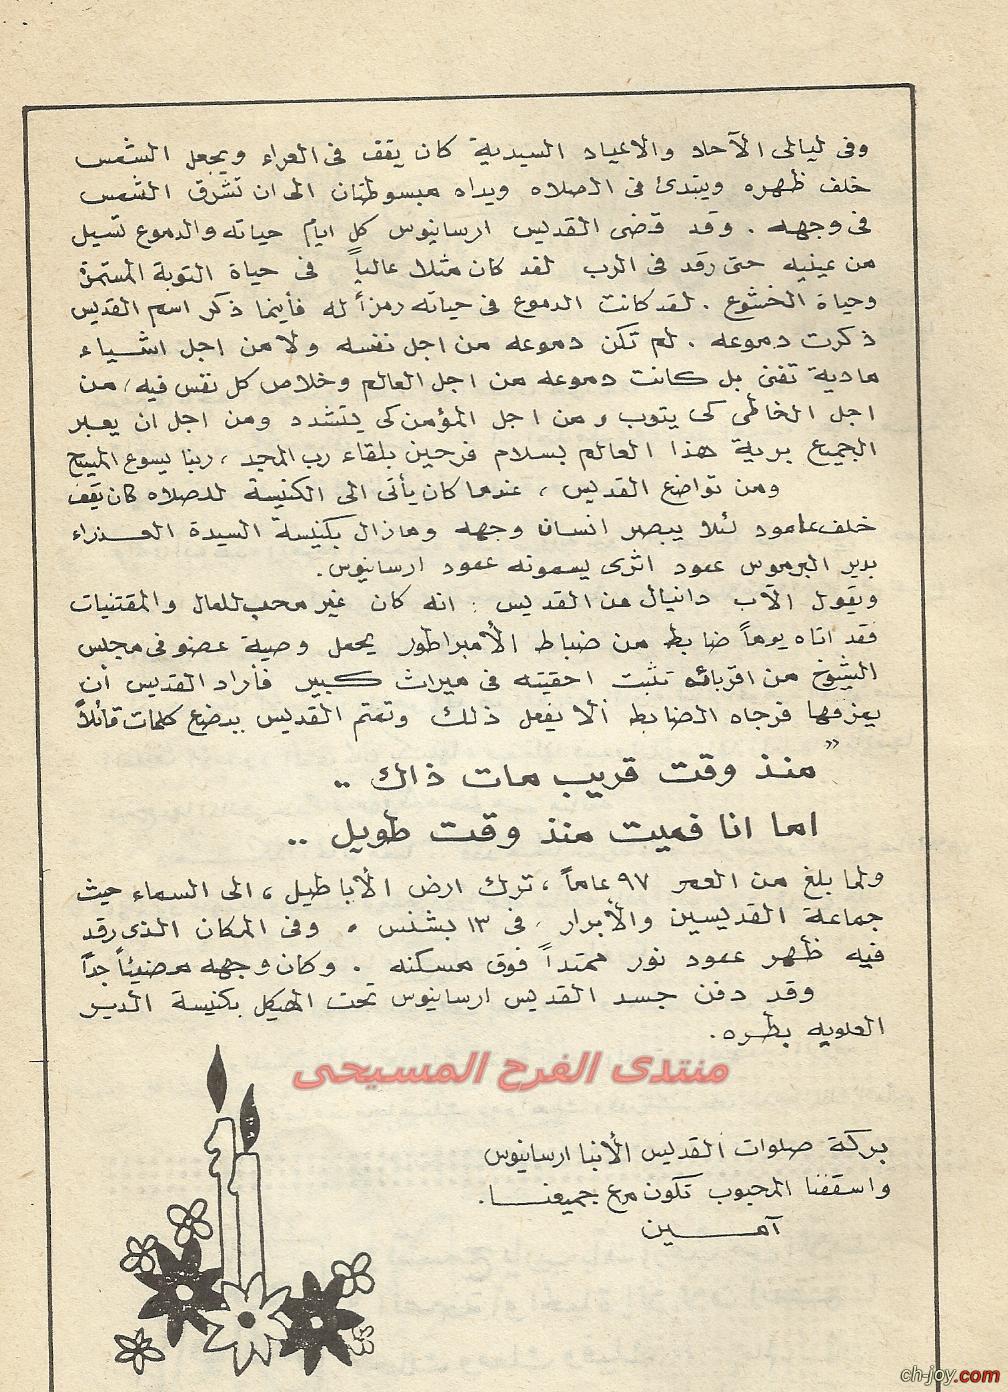 وفى ليالى الآحاد والاعياد السيدية كان يقف فى العراء ويجعل الشمس
خلف ظهره ويبتدئ فى الصلاه ويداه مبسوطتان الى ان تشرق الشمس
فى وجهه . وقد قضى القديس ارسانيوس كل ايام حياته والدموع تسيل
من عينيه حتى رقد فى الرب لقد كان مثلا عالياً فى حياة التوبة المستمرة
وحياة الخشوع . لقد كانت الدموع فى حياته رمزاً له فأينما ذكر اسم القديس
ذكرت دموعه . لم تكن دموعه من اجل نفسه ولا من اجل اشياء
مادية تفنى بل كانت دموعه من اجل العالم وخلاص كل نفس فيه ، من
اجل الخاطى كى يتوب ومن اجل المؤمن كى يتشدد ومن اجل ان يعبر
الجميع برية هذا العالم بسلام فرحين بلقاء رب المجد ، ربنا يسوع المسيح
ومن تواضع القديس ، عندما كان يأتى الى الكنيسة للصلاه كان يقف
خلف عامود لئلا يبصر انسان وجهه ومازال بكنيسة السيدة العذراء
بدير البرموس عمود اثرى يسمونه عمود ارسانيوس .
ويقول الآب دانيال من القديس : انه كان غير محب للمال والمقتنيات
فقد اتاه يوماً ضابط من ضباط الأمبراطور يحمل وصية عضو فى مجلس
الشيوخ من اقربائه تثبت احقيته فى ميراث كبير فأراد القديس أن
يمزقها فرجاه الضابط ألا يفعل ذلك وتمتم القديس ببضع كلمات قائلاً
" منذ وقت قريب مات ذاك ..
اما انا فميت منذ وقت طويل ..
ولما بلغ من العمر ٩٧ عاماً ، ترك ارض الأباطيل ، الى السماء حيث
جماعة القديسين والأبرار ، فى ١٣ بشنس . وفى المكان الذى رقد
فيه ظهر عمود نور ممتداً فوق مسكنه . وكان وجهه مضيئاً جداً
وقد دفن جسد القديس ارسانيوس تحت الهيكل بكنيسة الدير
العلويه بطره .
منتدى الفرح المسيحى
بركة صلوات القديس الأنبا ارسانيوس
واسقفنا المحبوب تكون مع جميعنا .
آمـــين
ch-joy.com